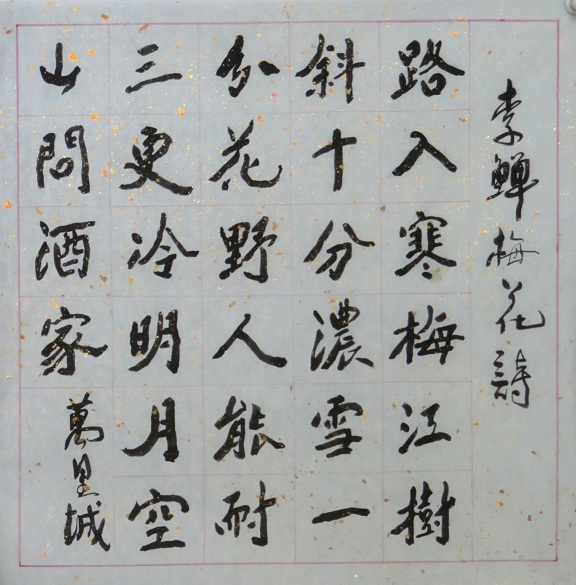 李鱓梅花詩
路入寒梅江樹
斜十分濃雪一
分花野人能耐
三更冷明月空
山問酒家
萬里城